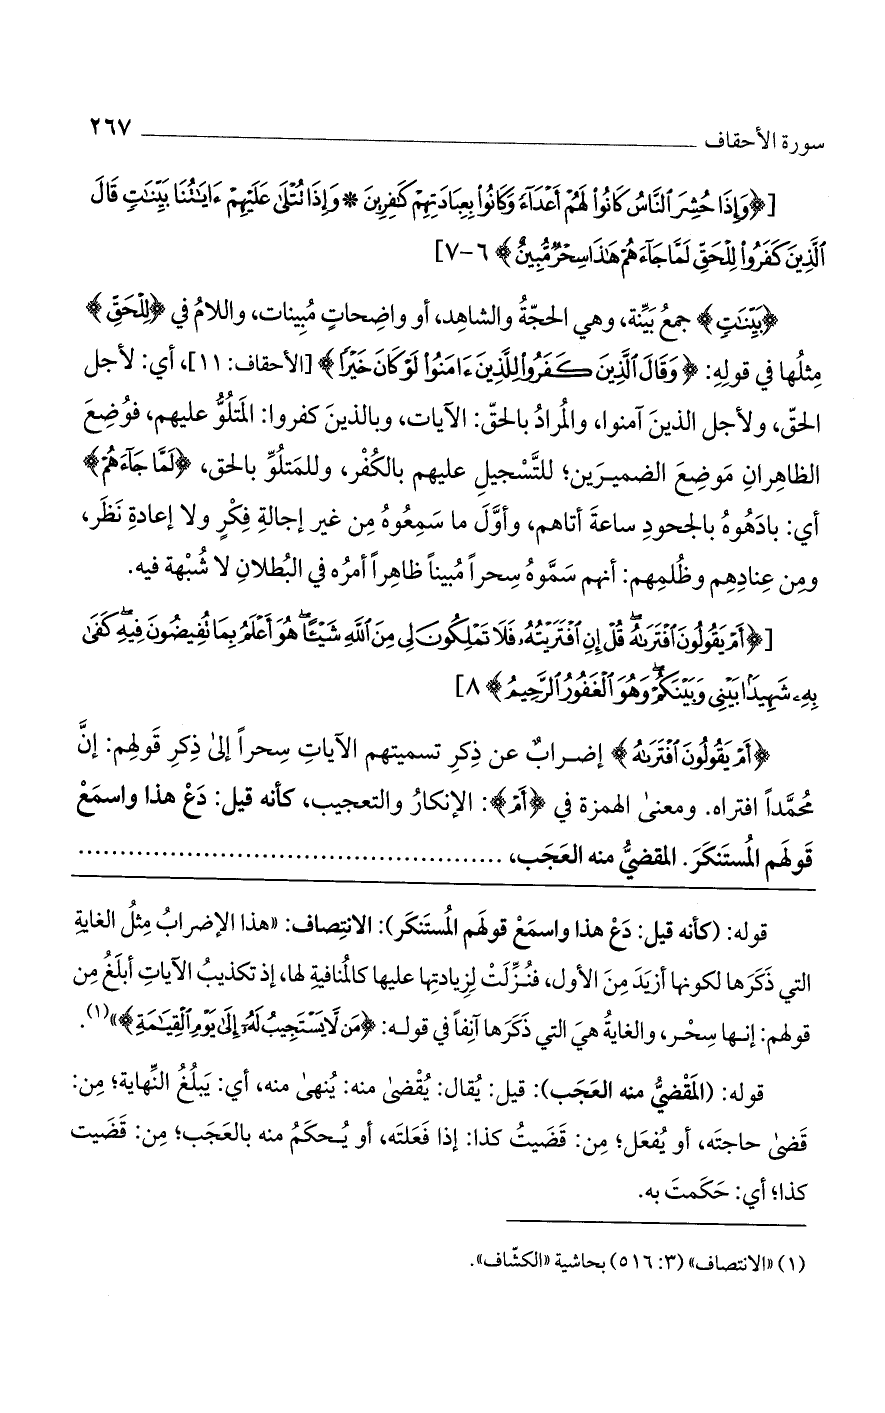 سورة الأحقاف ٢٦٧
[﴿وَإِذَا حُشِرَ ٱلنَّاسُ كَانُوا۟ لَهُمْ أَعْدَآءً وَكَانُوا۟ بِعِبَادَتِهِمْ كَٰفِرِينَ * وَإِذَا تُتْلَىٰ عَلَيْهِمْ ءَايَٰتُنَا بَيِّنَٰتٍ قَالَ
ٱلَّذِينَ كَفَرُوا۟ لِلْحَقِّ لَمَّا جَآءَهُمْ هَٰذَا سِحْرٌ مُّبِينٌ﴾ ٦-٧]
﴿بَيِّنَٰتٍ﴾ جمعُ بَيِّنة، وهي الحجّةُ والشاهِد، أو واضِحاتٍ مُبِينات، واللامُ في ﴿لِلْحَقِّ﴾
مِثلُها في قولِهِ: ﴿وَقَالَ ٱلَّذِينَ كَفَرُوا۟ لِلَّذِينَ ءَامَنُوا۟ لَوْ كَانَ خَيْرًا﴾ [الأحقاف: ١١]، أي: لأجل
الحقّ، ولأجل الذينَ آمنوا، والمُرادُ بالحقّ: الآيات، وبالذينَ كفروا: المَتلُوُّ عليهم، فوُضِعَ
الظاهِرانِ مَوضِعَ الضميرَين؛ للتَّسْجيلِ عليهم بالكُفْر، وللمَتلُوِّ بالحق، ﴿لَمَّا جَآءَهُمْ﴾
أي: بادَهُوهُ بالجحودِ ساعةَ أتاهم، وأوَّلَ ما سَمِعُوهُ مِن غير إجالةِ فِكْرٍ ولا إعادةِ نَظَر،
ومِن عِنادِهِم وظُلمِهم: أنهم سَمَّوهُ سِحراً مُبيناً ظاهِراً أمرُه في البُطلانِ لا شُبْهة فيه.
[﴿أَمْ يَقُولُونَ ٱفْتَرَىٰهُ ۖ قُلْ إِنِ ٱفْتَرَيْتُهُۥ فَلَا تَمْلِكُونَ لِى مِنَ ٱللَّهِ شَيْـًٔا ۖ هُوَ أَعْلَمُ بِمَا تُفِيضُونَ فِيهِ ۖ كَفَىٰ
بِهِۦ شَهِيدًۢا بَيْنِى وَبَيْنَكُمْ ۖ وَهُوَ ٱلْغَفُورُ ٱلرَّحِيمُ﴾ ٨]
﴿أَمْ يَقُولُونَ ٱفْتَرَىٰهُ﴾ إضرابٌ عن ذِكرِ تسميتهم الآياتِ سِحراً إلىٰ ذِكرِ قَولهِم: إنَّ
مُحمَّداً افتراه. ومعنىٰ الهمزة في ﴿أَمْ﴾: الإنكارُ والتعجيب، كأنه قيل: دَعْ هذا واسمَعْ
قَولهَم المُستَنكَرَ. المقضيُّ منه العَجَب، ................................................
قوله: (كأنه قيل: دَعْ هذا واسمَعْ قولهَم المُستَنكَر): الانتِصاف: «هذا الإضرابُ مِثلُ الغايةِ
التي ذَكَرَها لكونها أزيَدَ مِنَ الأول، فنُزِّلَتْ لِزيادتِها عليها كالمُنافيةِ لها، إذ تكذيبُ الآياتِ أبلَغُ مِن
قولهم: إنها سِحْر، والغايةُ هيَ التي ذَكَرَها آنِفاً في قوله: ﴿مَن لَّا يَسْتَجِيبُ لَهُۥٓ إِلَىٰ يَوْمِ ٱلْقِيَٰمَةِ﴾»(١).
قوله: (المَقْضيُّ منه العَجَب): قيل: يُقال: يُقْضىٰ منه: يُنهىٰ منه، أي: يَبلُغُ النِّهاية؛ مِن:
قَضىٰ حاجتَه، أو يُفعَل؛ مِن: قَضَيتُ كذا: إذا فَعَلتَه، أو يُحكَمُ منه بالعَجَب؛ مِن: قَضَيت
كذا؛ أي: حَكَمتَ به.
(١) «الانتصاف» (٣: ٥١٦) بحاشية «الكشّاف».